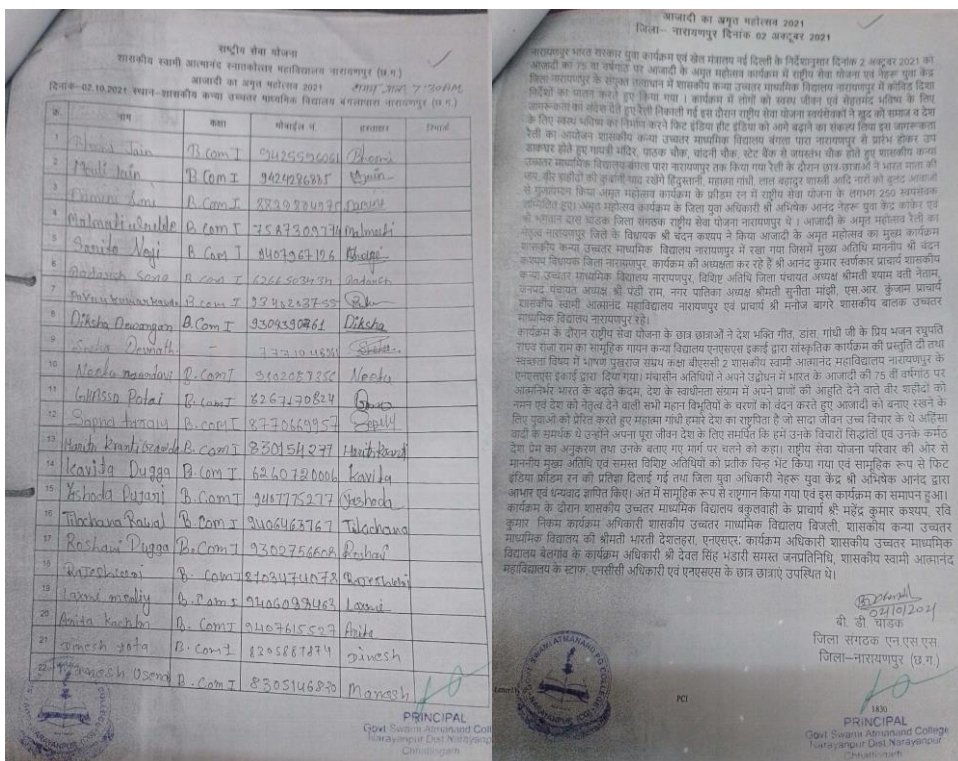 राष्ट्रीय सेवा योजना
शासकीय स्वामी आत्मानंद स्नातकोत्तर महाविद्यालय नारायणपुर (छ.ग.)
आजादी का अमृत महोत्सव 2021
दिनांक-02.10.2021, स्थान-शासकीय कन्या उच्चतर माध्यमिक विद्यालय बंगलापारा नारायणपुर (छ.ग.)
7:30 AM
नाम कक्षा मोबाईल नं. हस्ताक्षर रिमार्क
1 Jain B.Com I
2 Jain B.Com I 9424286885
3 Soni B.Com I
4 B.Com I Malmati
5 Negi B.Com I 9407967126
6 Aadarsh Sona B.Com I Aadarsh
7 B.Com I
8 Diksha Dewangan B.Com I Diksha
9 Sneha Devnath -
10 Neeta B.Com I Neeta
11 Potai B.Com I 6267170824
12 Sapna B.Com I 8770669957
13 B.Com I
14 Kavita Dugga B.Com I 6260720006 Kavita
15 Yeshoda Pujari B.Com I Yeshoda
16 Tilochana Rawal B.Com I 9406463767 Tilochana
17 Roshani Dugga B.Com I 9302756608
18 B.Com I
19 Laxmi B.Com I Laxmi
20 Anita B.Com I 9407615527 Anita
21 Dinesh B.Com I Dinesh
22 B.Com I
PRINCIPAL
Govt Swami Atmanand College
Narayanpur Dist Narayanpur
Chhattisgarh
आजादी का अमृत महोत्सव 2021
जिला- नारायणपुर दिनांक 02 अक्टूबर 2021
नारायणपुर भारत सरकार युवा कार्यक्रम एवं खेल मंत्रालय नई दिल्ली के निर्देशानुसार दिनांक 2 अक्टूबर 2021 को
आजादी का 75 वां वर्षगांठ पर आजादी के अमृत महोत्सव कार्यक्रम में राष्ट्रीय सेवा योजना एवं नेहरू युवा केंद्र
जिला नारायणपुर के संयुक्त तत्वाधान में शासकीय कन्या उच्चतर माध्यमिक विद्यालय नारायणपुर में कोविड दिशा
निर्देशों का पालन करते हुए किया गया। कार्यक्रम में लोगों को स्वस्थ जीवन एवं सेहतमंद भविष्य के लिए
जागरूकता का संदेश देते हुए रैली निकाली गई इस दौरान राष्ट्रीय सेवा योजना स्वयंसेवकों ने खुद को समाज व देश
के लिए स्वस्थ भविष्य का निर्माण करने फिट इंडिया हीट इंडिया को आगे बढ़ाने का संकल्प लिया इस जागरूकता
रैली का आयोजन शासकीय कन्या उच्चतर माध्यमिक विद्यालय बंगला पारा नारायणपुर से प्रारंभ होकर उप
डाकघर होते हुए गायत्री मंदिर, पाठक चौक, चांदनी चौक, स्टेट बैंक से जयस्तंभ चौक होते हुए शासकीय कन्या
उच्चतर माध्यमिक विद्यालय बंगला पारा नारायणपुर तक किया गया रैली के दौरान छात्र-छात्राओं ने भारत माता की
जय, वीर शहीदों की कुर्बानी याद रखेंगे हिंदुस्तानी, महात्मा गांधी, लाल बहादुर शास्त्री आदि नारों को बुलंद आवाजों
से गुंजायमान किया अमृत महोत्सव कार्यक्रम के फ्रीडम रन में राष्ट्रीय सेवा योजना के लगभग 250 स्वयंसेवक
सम्मिलित हुए। अमृत महोत्सव कार्यक्रम के जिला युवा अधिकारी श्री अभिषेक आनंद नेहरू युवा केंद्र कांकेर एवं
श्री भगवान दास चांडक जिला संगठक राष्ट्रीय सेवा योजना नारायणपुर थे। आजादी के अमृत महोत्सव रैली का
नेतृत्व नारायणपुर जिले के विधायक श्री चंदन कश्यप ने किया आजादी के अमृत महोत्सव का मुख्य कार्यक्रम
शासकीय कन्या उच्चतर माध्यमिक विद्यालय नारायणपुर में रखा गया जिसमें मुख्य अतिथि माननीय श्री चंदन
कश्यप विधायक जिला नारायणपुर, कार्यक्रम की अध्यक्षता कर रहे हैं श्री आनंद कुमार स्वर्णकार प्राचार्य शासकीय
कन्या उच्चतर माध्यमिक विद्यालय नारायणपुर, विशिष्ट अतिथि जिला पंचायत अध्यक्ष श्रीमती श्याम बती नेताम,
जनपद पंचायत अध्यक्ष श्री पंडी राम, नगर पालिका अध्यक्ष श्रीमती सुनीता मांझी, एस.आर. कुंजाम प्राचार्य
शासकीय स्वामी आत्मानंद महाविद्यालय नारायणपुर एवं प्राचार्य श्री मनोज बागरे शासकीय बालक उच्चतर
माध्यमिक विद्यालय नारायणपुर रहे।
कार्यक्रम के दौरान राष्ट्रीय सेवा योजना के छात्र छात्राओं ने देश भक्ति गीत, डांस, गांधी जी के प्रिय भजन रघुपति
राघव राजा राम का सामूहिक गायन कन्या विद्यालय एनएसएस इकाई द्वारा सांस्कृतिक कार्यक्रम की प्रस्तुति दी तथा
स्वच्छता विषय में भाषण पुखराज सम्रथ कक्षा बीएससी 2 शासकीय स्वामी आत्मानंद महाविद्यालय नारायणपुर के
एनएसएस इकाई द्वारा दिया गया। मंचासीन अतिथियों ने अपने उद्बोधन में भारत के आजादी की 75 वीं वर्षगांठ पर
आत्मनिर्भर भारत के बढ़ते कदम, देश के स्वाधीनता संग्राम में अपने प्राणों की आहुति देने वाले वीर शहीदों को
नमन एवं देश को नेतृत्व देने वाली सभी महान विभूतियों के चरणों को वंदन करते हुए आजादी को बनाए रखने के
लिए युवाओं को प्रेरित करते हुए महात्मा गांधी हमारे देश का राष्ट्रपिता है जो सादा जीवन उच्च विचार के थे अहिंसा
वादी के समर्थक थे उन्होंने अपना पूरा जीवन देश के लिए समर्पित कि हमें उनके विचारों सिद्धांतों एवं उनके कर्मठ
देश प्रेम का अनुकरण तथा उनके बताए गए मार्ग पर चलने को कहा। राष्ट्रीय सेवा योजना परिवार की ओर से
माननीय मुख्य अतिथि एवं समस्त विशिष्ट अतिथियों को प्रतीक चिन्ह भेंट किया गया एवं सामूहिक रूप से फिट
इंडिया फ्रीडम रन की प्रतिज्ञा दिलाई गई तथा जिला युवा अधिकारी नेहरू युवा केंद्र श्री अभिषेक आनंद द्वारा
आभार एवं धन्यवाद ज्ञापित किए। अंत में सामूहिक रूप से राष्ट्रगान किया गया एवं इस कार्यक्रम का समापन हुआ।
कार्यक्रम के दौरान शासकीय उच्चतर माध्यमिक विद्यालय बकुलवाही के प्राचार्य श्री महेंद्र कुमार कश्यप, रवि
कुमार निकम कार्यक्रम अधिकारी शासकीय उच्चतर माध्यमिक विद्यालय बिजली, शासकीय कन्या उच्चतर
माध्यमिक विद्यालय की श्रीमती भारती देशलहरा, एनएसएस कार्यक्रम अधिकारी शासकीय उच्चतर माध्यमिक
विद्यालय बेलगांव के कार्यक्रम अधिकारी श्री देवल सिंह भंडारी समस्त जनप्रतिनिधि, शासकीय स्वामी आत्मानंद
महाविद्यालय के स्टाफ, एनसीसी अधिकारी एवं एनएसएस के छात्र छात्राएं उपस्थित थे।
02/10/2021
बी. डी. चांडक
जिला संगठक एन.एस.एस.
जिला-नारायणपुर (छ.ग.)
PCI
1830
PRINCIPAL
Govt Swami Atmanand College
Narayanpur Dist Narayanpur
Chhattisgarh